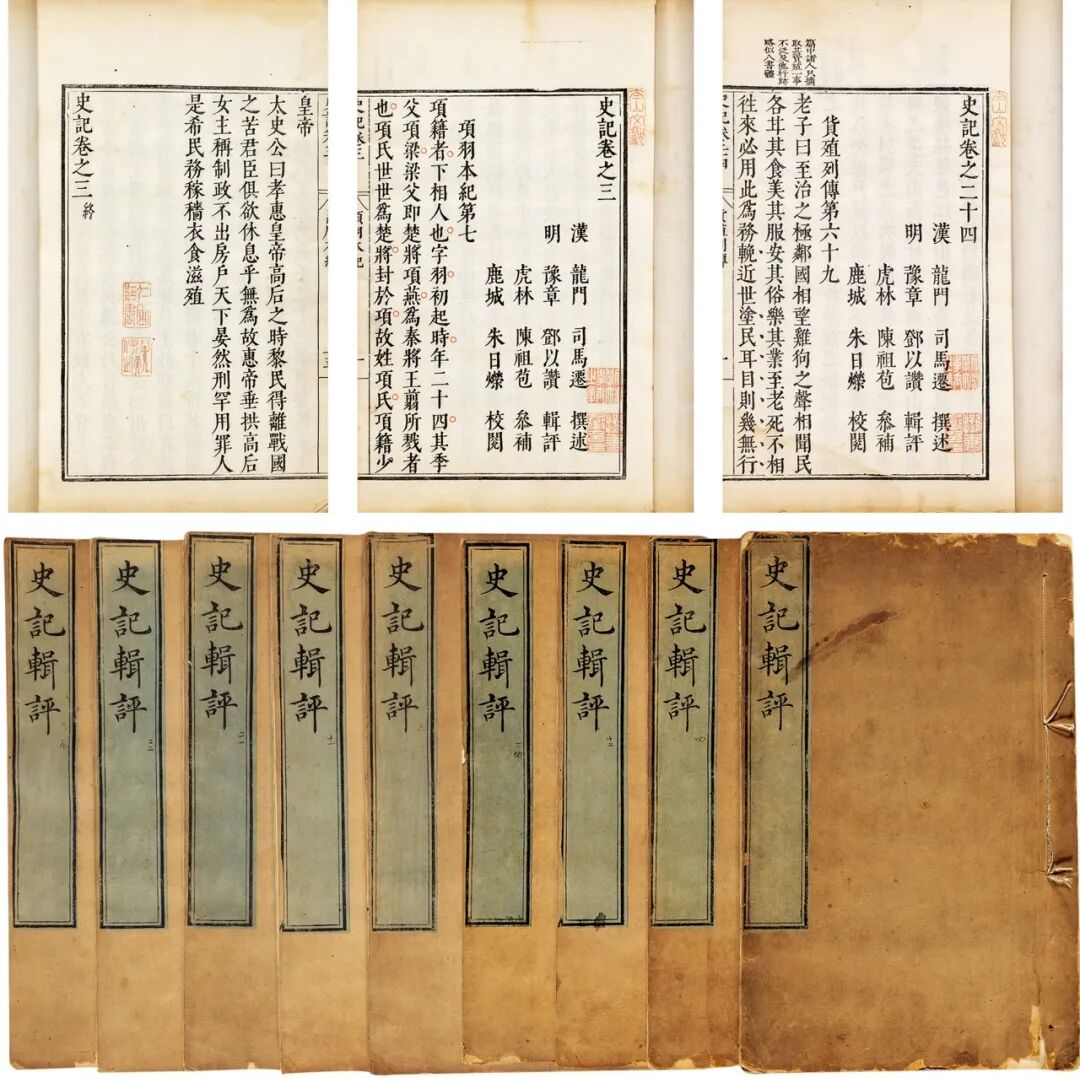 皇帝
太史公曰孝惠皇帝高后之時黎民得離戰國
之苦君臣俱欲休息乎無爲故惠帝垂拱高后
女主稱制政不出房戶天下晏然刑罕用罪人
是希民務稼穡衣食滋殖
史記卷之三 終
史記卷之三
漢 龍門 司馬遷 撰述
明 豫章 鄧以讚 輯評
虎林 陳祖苞 叅補
鹿城 朱日燦 校閱
項羽本紀第七
項籍者下相人也字羽初起時年二十四其季
父項梁梁父即楚將項燕爲秦將王翦所戮者
也項氏世世爲楚將封於項故姓項氏項籍少
項羽本紀
篇中諸人只摘
取其貨殖一事
不泛及他行跡
略似八書體
史記卷之二十四
漢 龍門 司馬遷 撰述
明 豫章 鄧以讚 輯評
虎林 陳祖苞 叅補
鹿城 朱日燦 校閱
貨殖列傳第六十九
老子曰至治之極鄰國相望雞狗之聲相聞民
各甘其食美其服安其俗樂其業至老死不相
徃來必用此爲務輓近世塗民耳目則幾無行
史記輯評
史記輯評
史記輯評
史記輯評
史記輯評
史記輯評
史記輯評
史記輯評
史記輯評